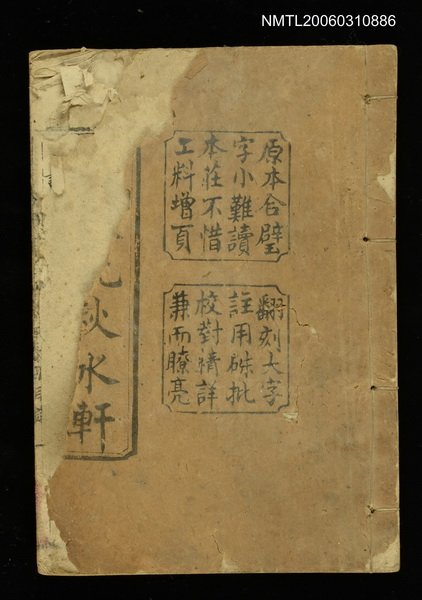 NMTL20060310886
原本合璧
字小難讀
本莊不惜
工料增頁
翻刻大字
註用硃批
校對精詳
兼而瞭亮
秋水軒